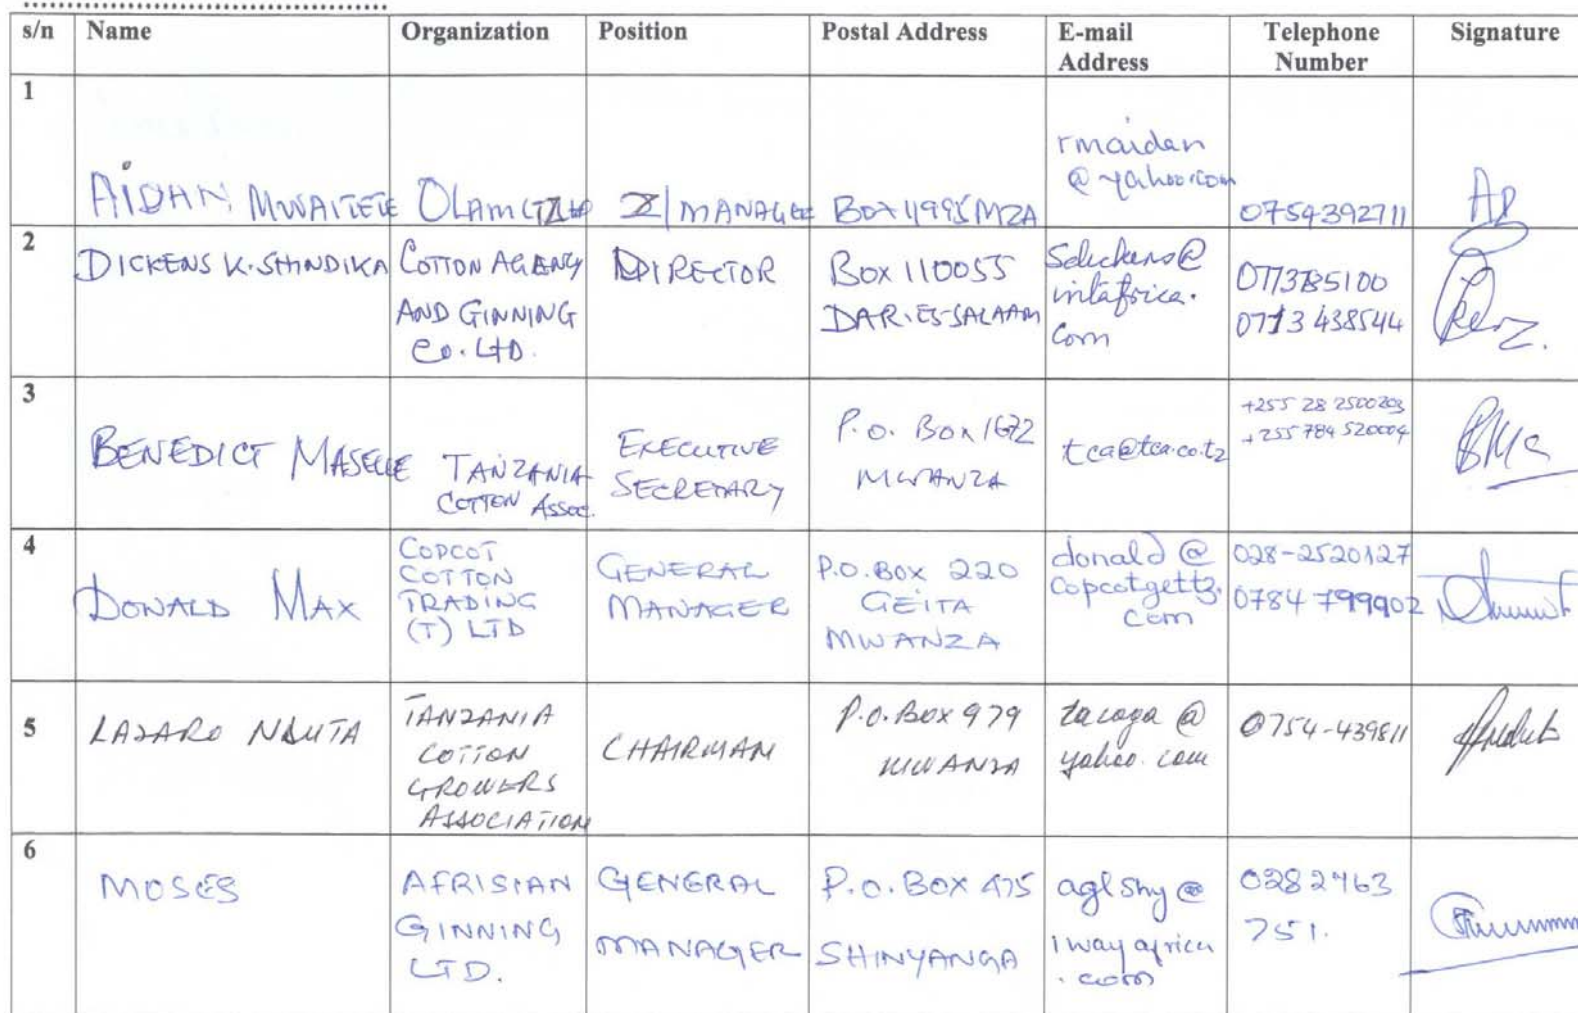 s/n Name Organization Position Postal Address E-mail Address Telephone Number Signature
1
AIDAN MWAITETE OLAM (T) LTD Z/MANAGER BOX 11995 MZA rmaidan @yahoo.com 0754392711
2
DICKENS K. SHINDIKA COTTON AGENCY AND GINNING CO. LTD. DIRECTOR BOX 110055 DAR-ES-SALAAM sdickens@ intafrica. com 0713 438544
3
BENEDICT MASELLE TANZANIA COTTON ASSOC. EXECUTIVE SECRETARY P.O. BOX 1672 MWANZA tca@tca.co.tz +255 28 2500203 +255 784 520004
4
DONALD MAX COPCOT COTTON TRADING (T) LTD GENERAL MANAGER P.O. BOX 220 GEITA MWANZA donald @ copcotgettz. com 028-2520127 0784 799902
5
LAZARO TANZANIA COTTON GROWERS ASSOCIATION CHAIRMAN P.O. BOX 979 MWANZA tacoga @ yahoo. com 0754-439811
6
MOSES AFRISIAN GINNING LTD. GENERAL MANAGER P.O. BOX 475 SHINYANGA aglshy @ iwayafrica .com 0282763 751.